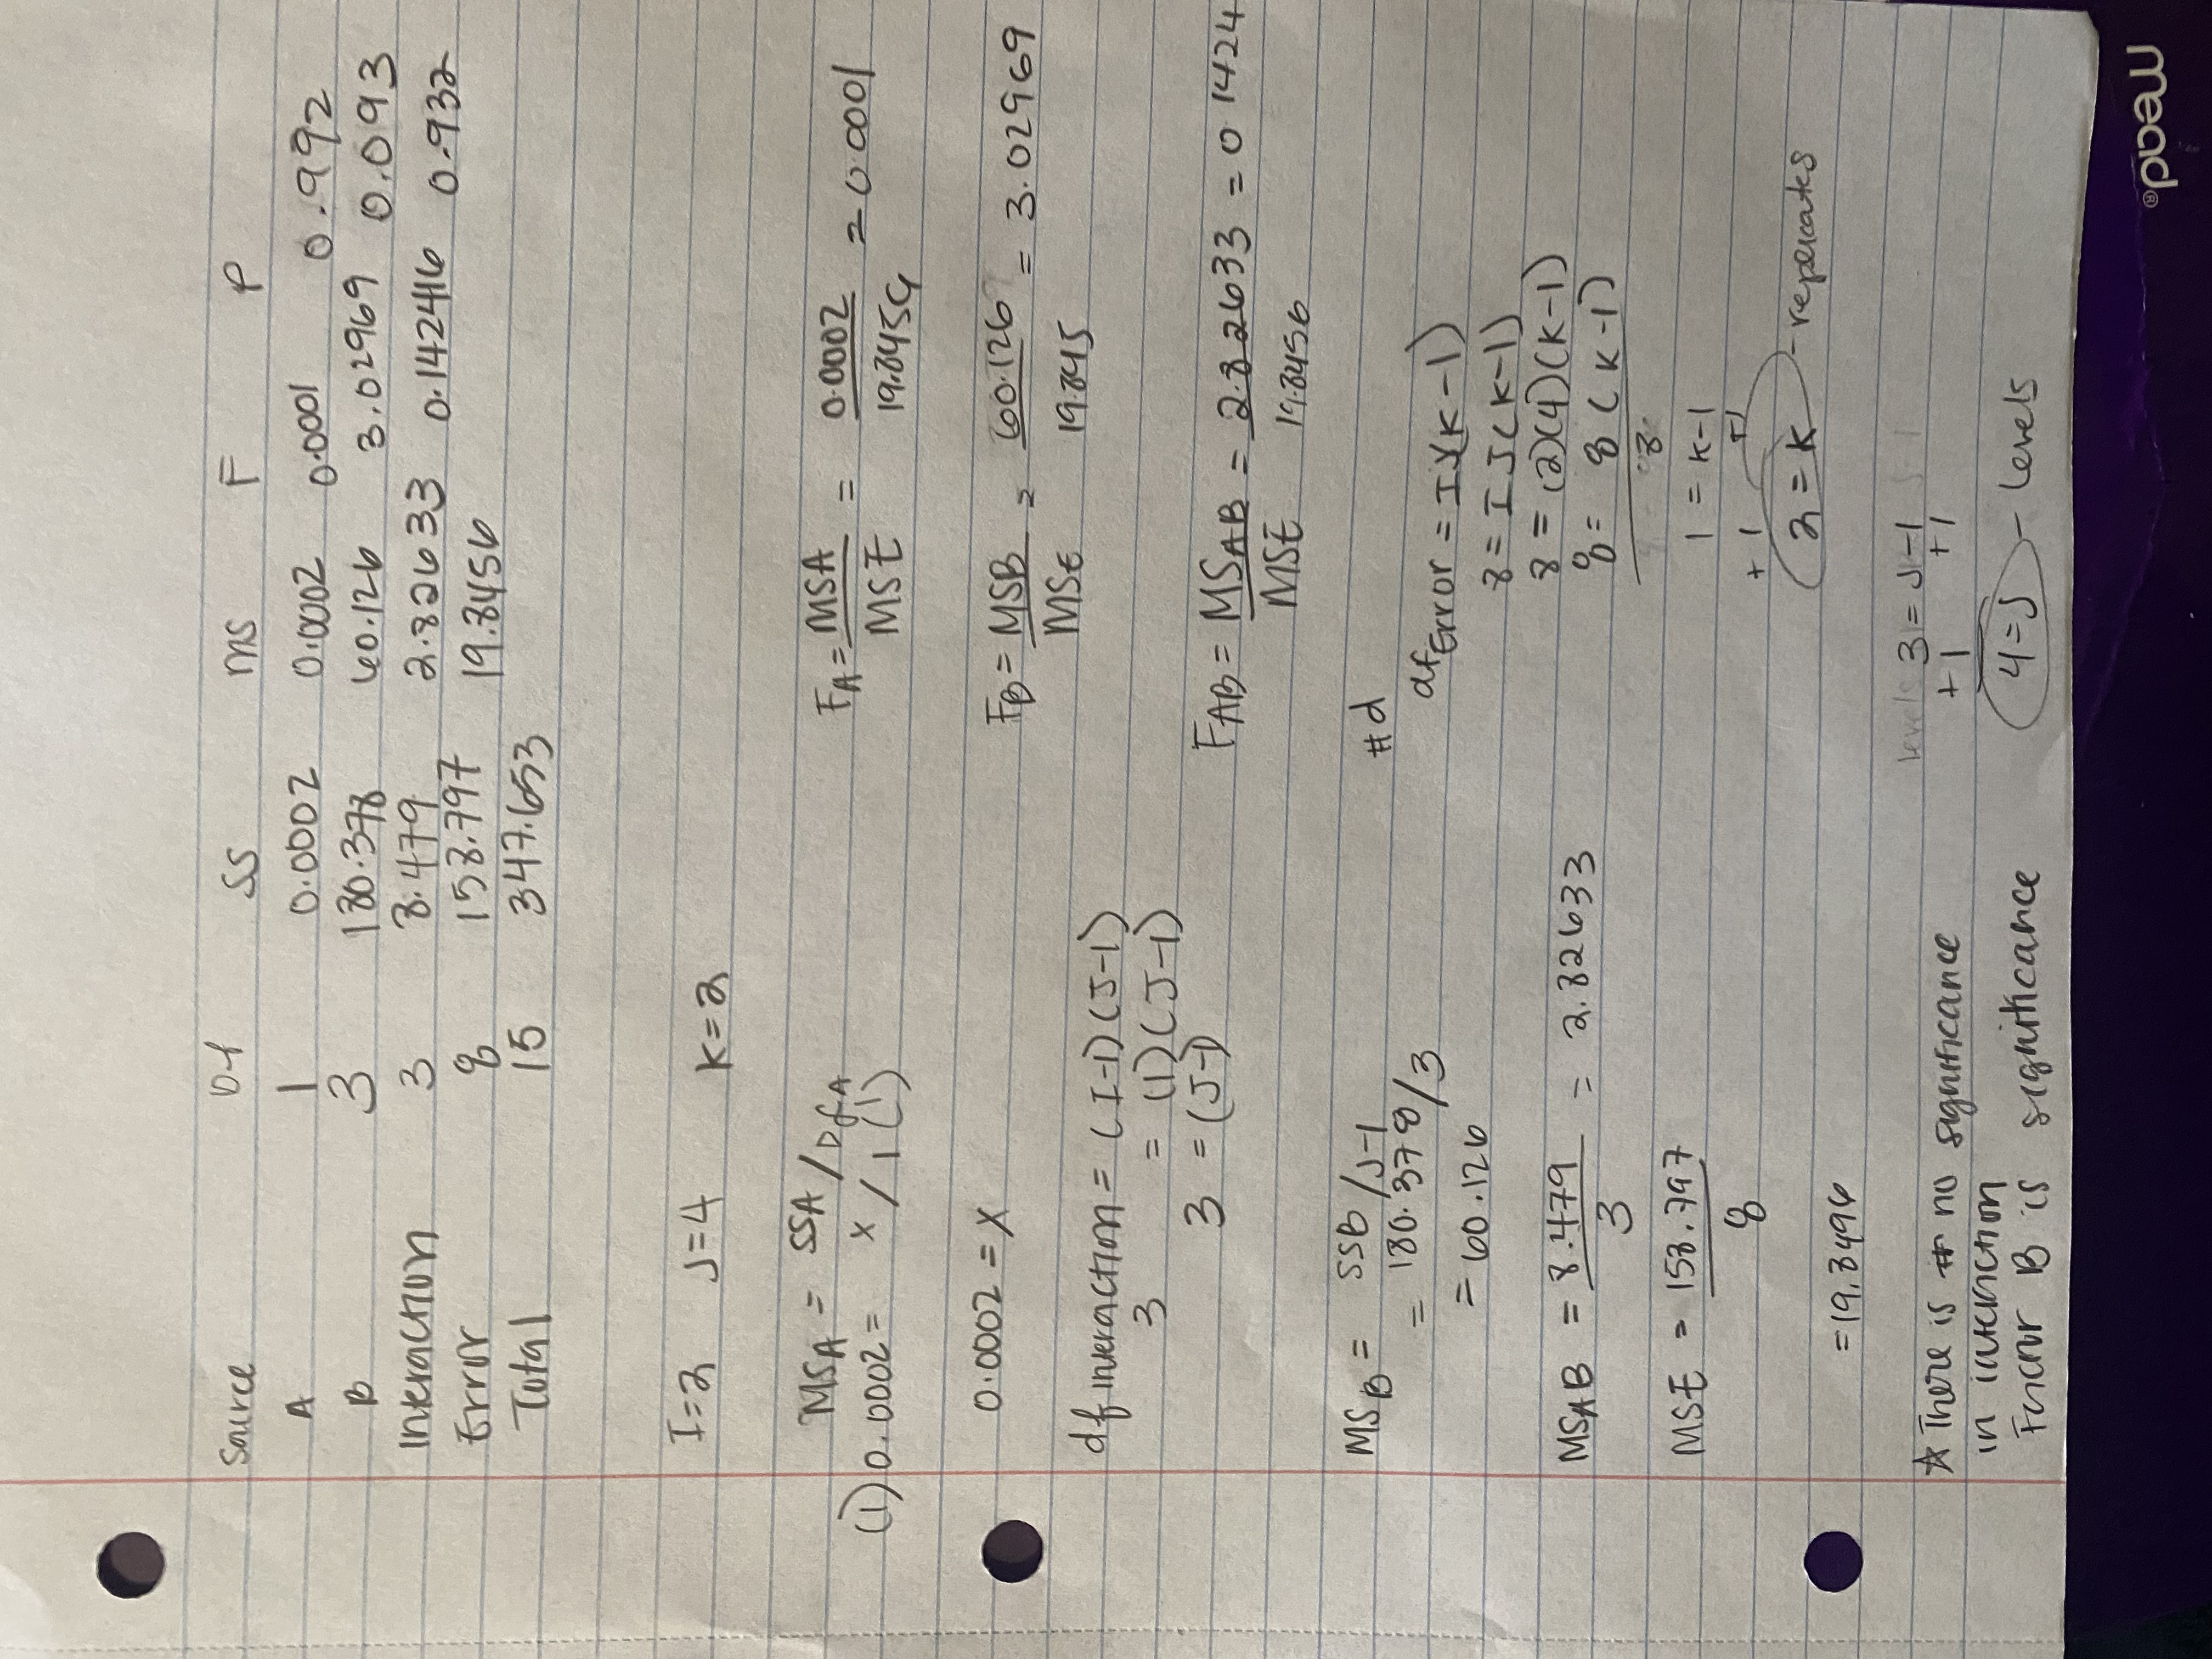 Source Df SS MS F P
A 1 0.0002 0.0002 0.0001 0.992
B 3 180.378 60.126 3.02969 0.093
Interaction 3 8.479 2.82633 0.142416 0.932
Error 8 158.797 19.8456
Total 15 347.653
I=2 J=4 K=2
MSA = SSA / DfA
(1) 0.0002 = x / 1 (1)
0.0002 = x
df interaction = (I-1)(J-1)
3 = (1)(J-1)
3 = (J-1)
MSB = SSB / J-1
= 180.378/3
= 60.126
MSAB = 8.479 / 3 = 2.82633
MSE = 158.797
8
=19.8496
☆ There is no significance
in interaction
Factor B is significance
FA = MSA / MSE = 0.0002 / 19.8456 = 0.0001
FB = MSB / MSE = 60.126 / 19.845 = 3.02969
FAB = MSAB / MSE = 2.82633 / 19.8456 = 0.1424
#d
df Error = IJ(K-1)
8 = IJ(K-1)
8 = (2)(4)(K-1)
8 = 8(K-1)
8
1 = K-1
+1 +1
2 = K - replicates
levels 3 = J-1
+1 +1
4=J - Levels
Mead®